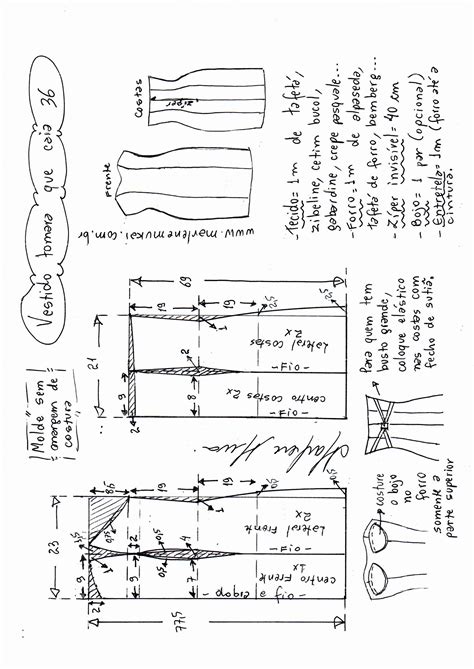 Vestido tomara que caia 36
|Molde sem|
|margem de|
|costura|
Frente
Costas
zíper
www.marlenemukai.com.br
- Tecido = 1m de tafetá,
zibeline, cetim bucol,
gabardine, crepe pasquale...
- Forro = 1m de alpaseda,
tafetá de forro, bemberg...
- Zíper invisível = 40 cm
- Bojo = 1 par (opcional)
- Entretela = 1m (forro até a
cintura.
21
69
19
19
2,5
1
2
9
8
2
2,5
Lateral Costas
2x
- Fio -
centro costas 2x
- Fio -
Marlene Mukai
23
8,5
19
19
0,75
0,5
4
1
2
9
9
7
0,5
1
0,5
2
77,5
Lateral Frente
2x
- Fio -
centro Frente
1x
dobra e fio -
Para quem tem
busto grande,
coloque elástico
nas costas com
fecho de sutiã.
costure
o bojo
no
forro
somente a
parte superior